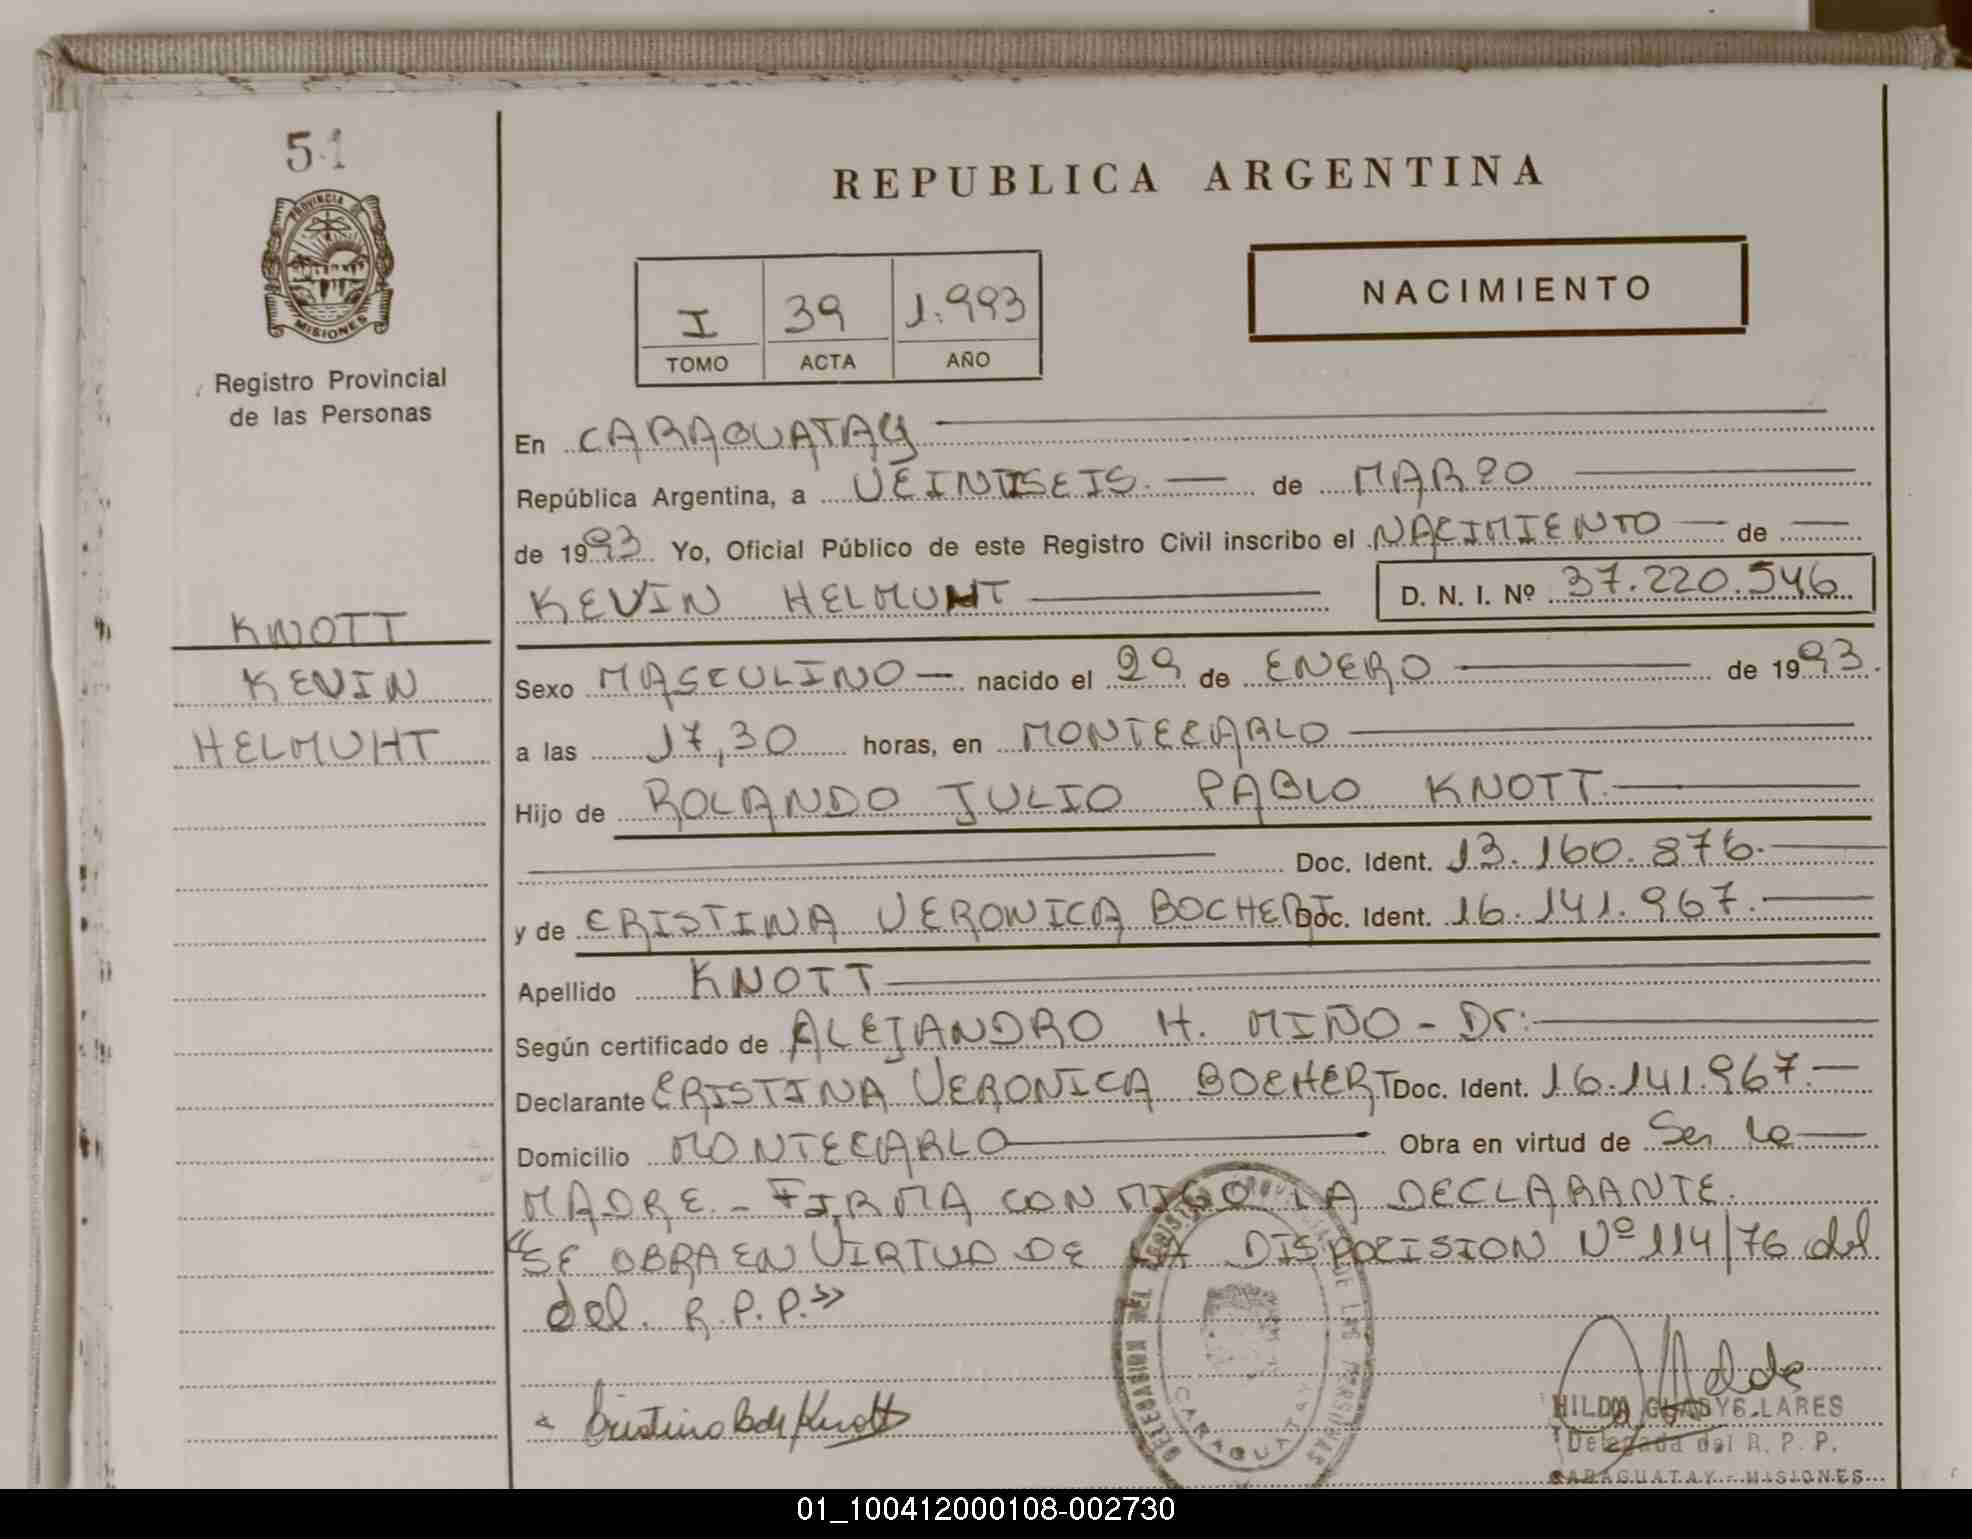 51
PROVINCIA DE
MISIONES
Registro Provincial
de las Personas
KNOTT
KEVIN
HELMUHT
REPUBLICA ARGENTINA
I 39 1.993
TOMO ACTA AÑO
NACIMIENTO
En CARAGUATAY
República Argentina, a VEINTISEIS. — de MARZO
de 1993 Yo, Oficial Público de este Registro Civil inscribo el NACIMIENTO — de —
KEVIN HELMUHT — D. N. I. Nº 37.220.546
Sexo MASCULINO — nacido el 29 de ENERO — de 1993.
a las 17,30 horas, en MONTECARLO —
Hijo de ROLANDO JULIO PABLO KNOTT. —
— Doc. Ident. 13.160.876. —
y de CRISTINA VERONICA BOCHERT Doc. Ident. 16.141.967. —
Apellido KNOTT —
Según certificado de ALEJANDRO H. MIÑO - Dr: —
Declarante CRISTINA VERONICA BOCHERT Doc. Ident. 16.141.967. —
Domicilio MONTECARLO — Obra en virtud de Ser la —
MADRE. - FIRMA CONMIGO LA DECLARANTE.
"SE OBRA EN VIRTUD DE LA DISPOCISION Nº 114/76 del
del. R.P.P."
DELEGACION DEL REGISTRO PROVINCIAL DE LAS PERSONAS
CARAGUATAY
HILDA GLADYS LARES
Delegada del R. P. P.
CARAGUATAY - MISIONES
01_100412000108-002730